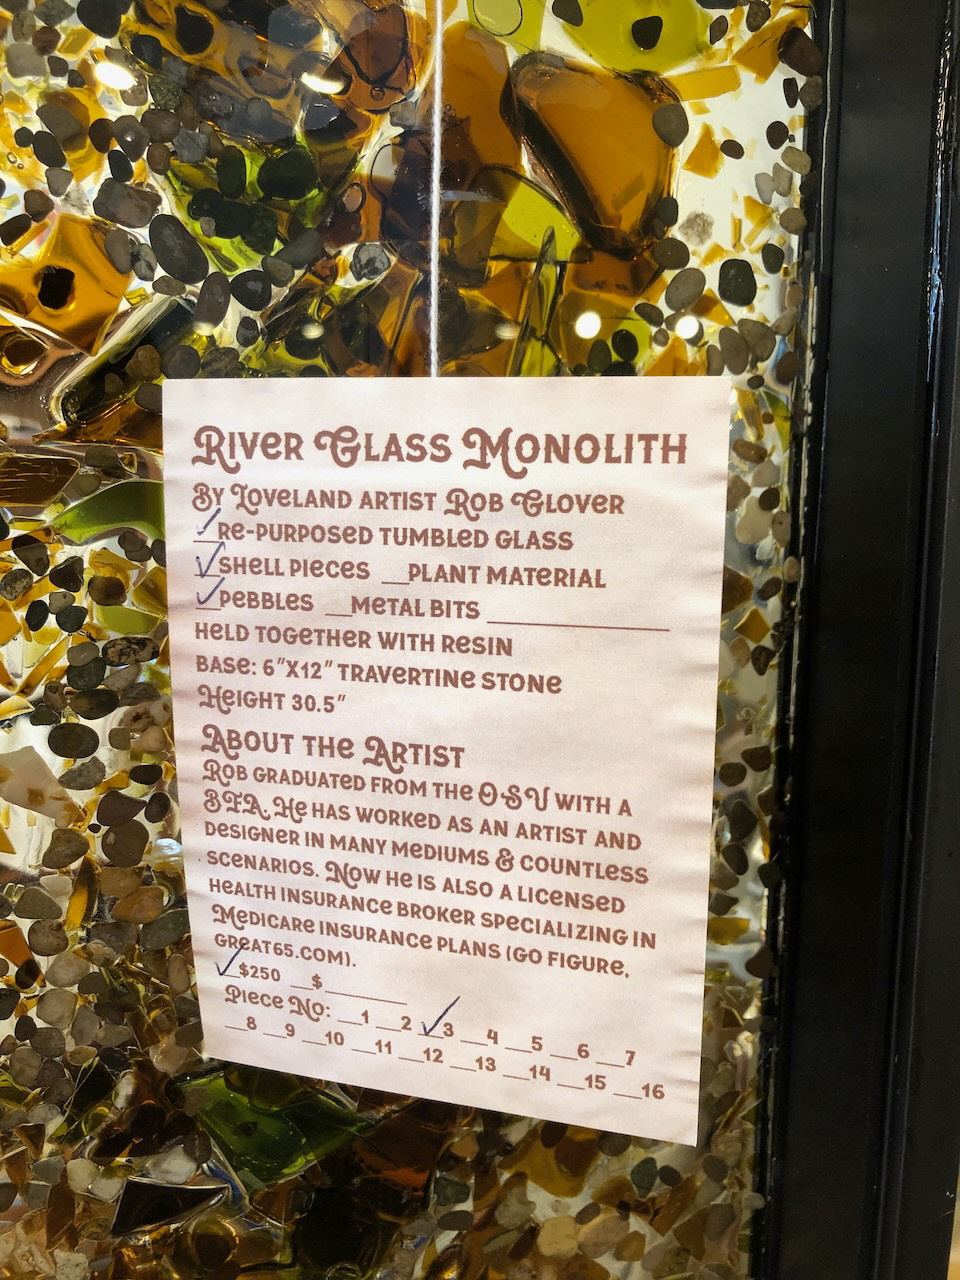 River Glass Monolith
By Loveland artist Rob Glover
✓ Re-purposed tumbled glass
✓ Shell pieces __Plant material
✓ Pebbles __Metal bits ____________
Held together with resin
Base: 6"x12" Travertine stone
Height 30.5"
About the Artist
Rob graduated from the OSU with a
BFA. He has worked as an artist and
designer in many mediums & countless
scenarios. Now he is also a licensed
health insurance broker specializing in
Medicare insurance plans (go figure,
great65.com).
✓ $250 __$________
Piece No: __1 __2 ✓ 3 __4 __5 __6 __7
__8 __9 __10 __11 __12 __13 __14 __15 __16